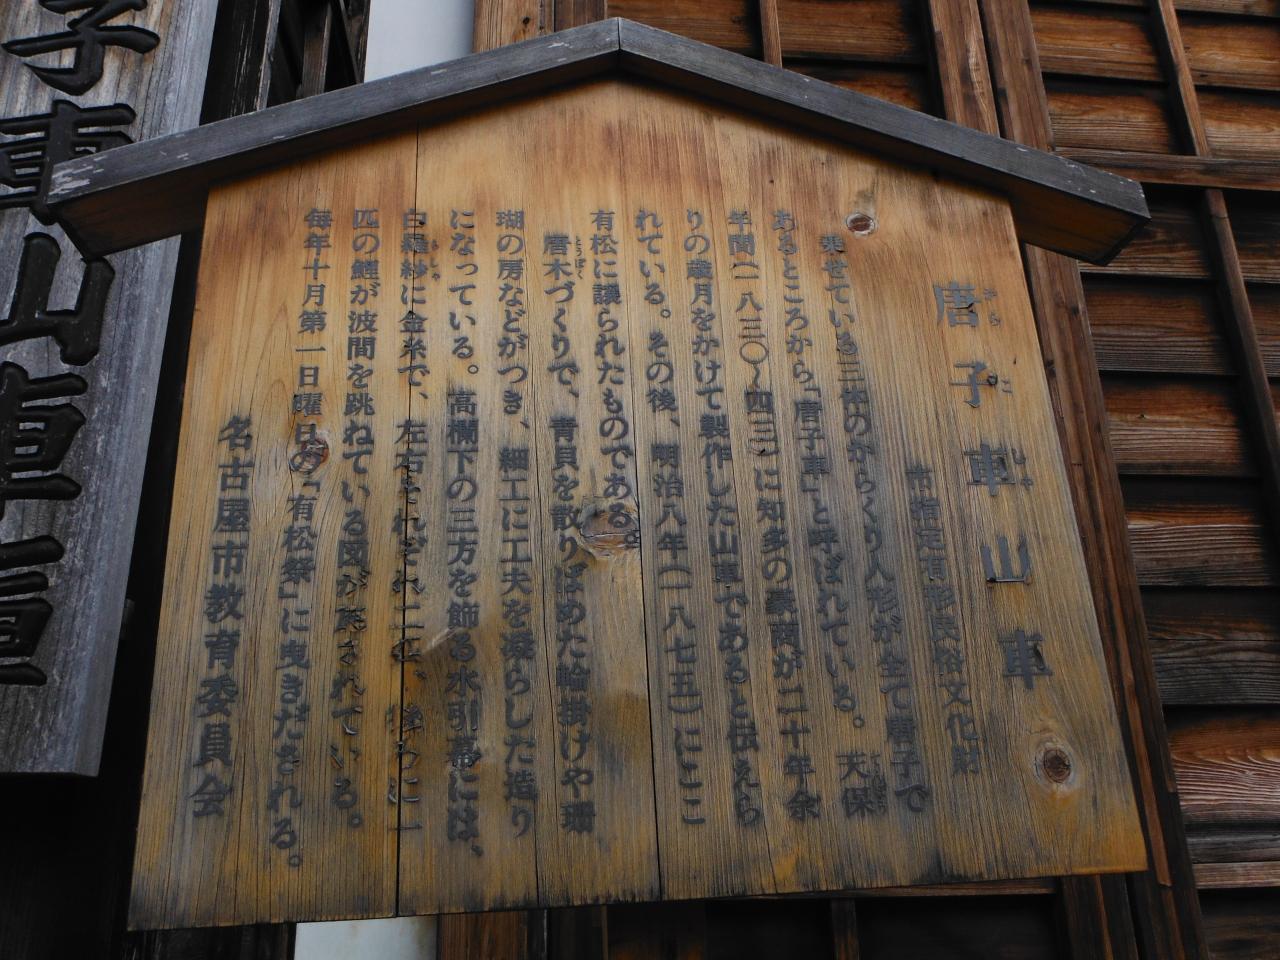 唐子車山車
から こ しゃ
市指定有形民俗文化財
乗せている三体のからくり人形が全て唐子で
あるところから「唐子車」と呼ばれている。天保
てんぽう
年間(一八三〇〜四三)に知多の豪商が二十年余
りの歳月をかけて製作した山車であると伝えら
れている。その後、明治八年(一八七五)にここ
有松に譲られたものである。
唐木づくりで、青貝を散りばめた輪掛けや珊
とうぼく
瑚の房などがつき、細工に工夫を凝らした造り
になっている。高欄下の三方を飾る水引幕には、
白羅紗に金糸で、左右それぞれ二匹、後ろに一
らしゃ
匹の鯉が波間を跳ねている図が施されている。
毎年十月第一日曜日の「有松祭」に曳きだされる。
名古屋市教育委員会
子車山車